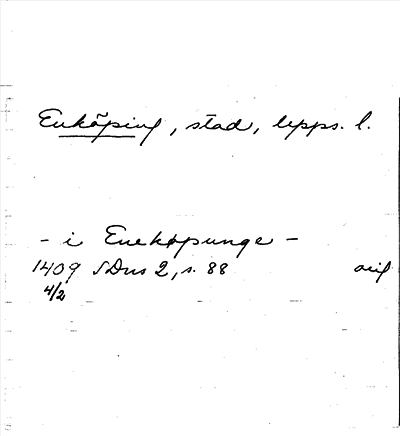 Enköping, stad, Upps. l.
- i Enekøpunge -
1409 SDns 2, s. 88 orig
4/2